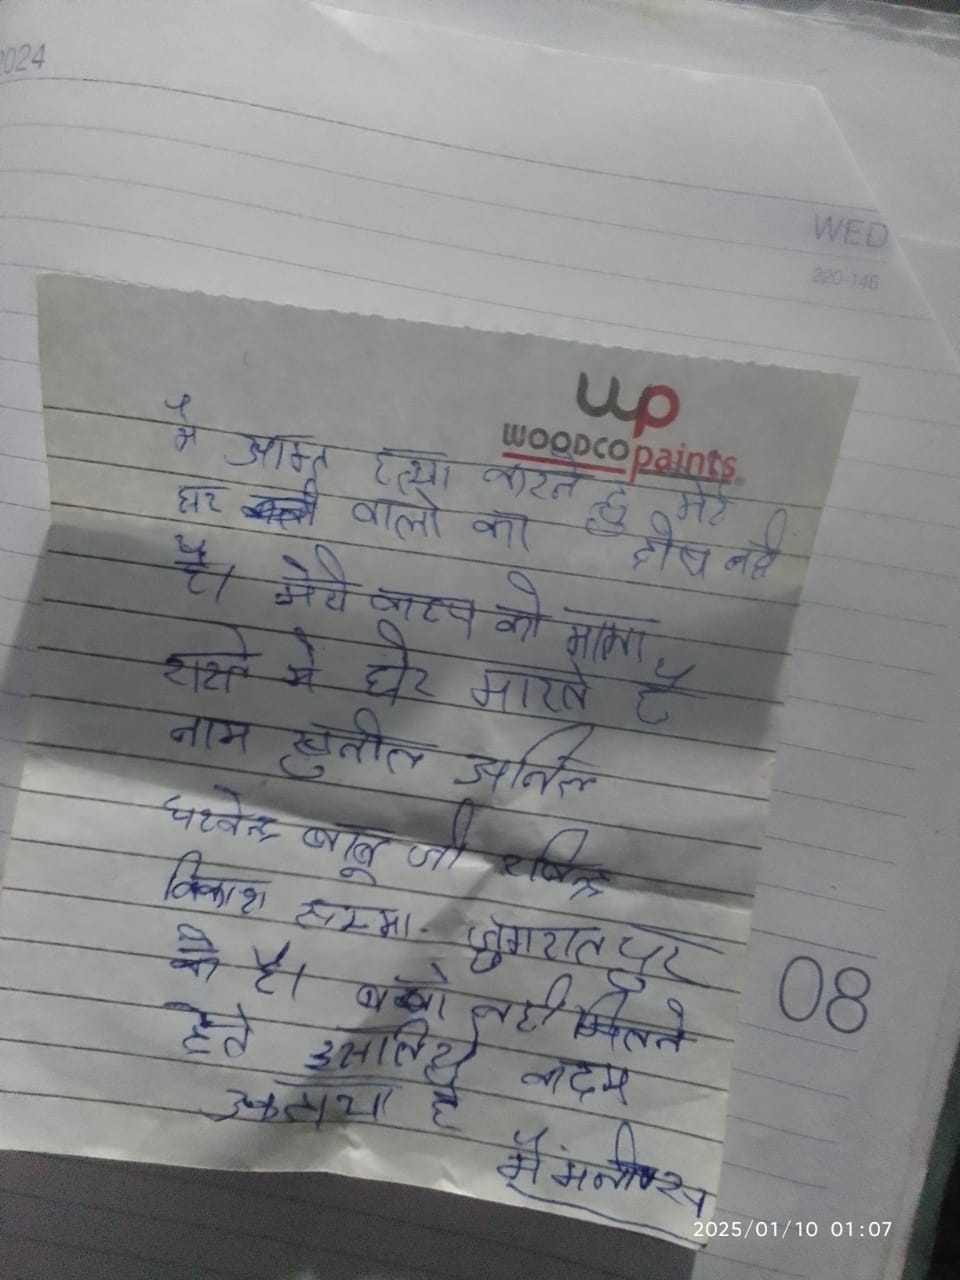 2024
WED
220-146
wp
WOODCO paints
मै आत्म हत्या करते हु मेरे
घर वालो का दोष नही
है। मेरी वाहप को मामा
रास्ते मे घेर मारते है
नाम सुनील अनिल
बाबू जी रविन्द्र
विकाश
के है। बच्चो नही मिलने
देते इसलिए कदम
उठाया है
मैं मनीष
08
2025/01/10 01:07